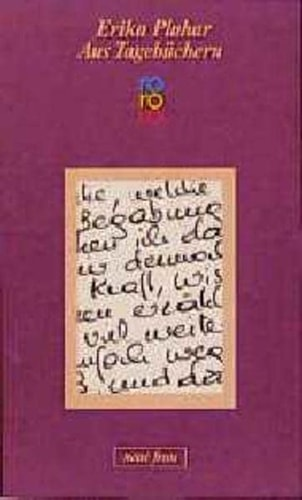 Erika Pluhar
Aus Tagebüchern
ro
ro
ro
he, welche
Begabung
hen ich da
dennoch
Kraft, wis
nen erzähl
und weite
nfach weg
und da
neue frau